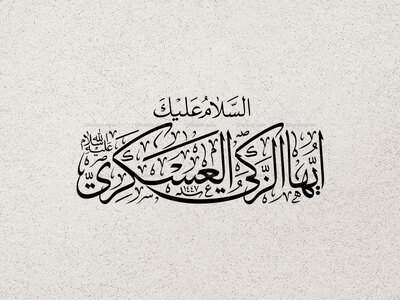 السَّلامُ عَلَيْكَ
ايُّهَا الزَّكِيُّ العَسْكَرِيُّ
عليه السلام
١٤٤٧